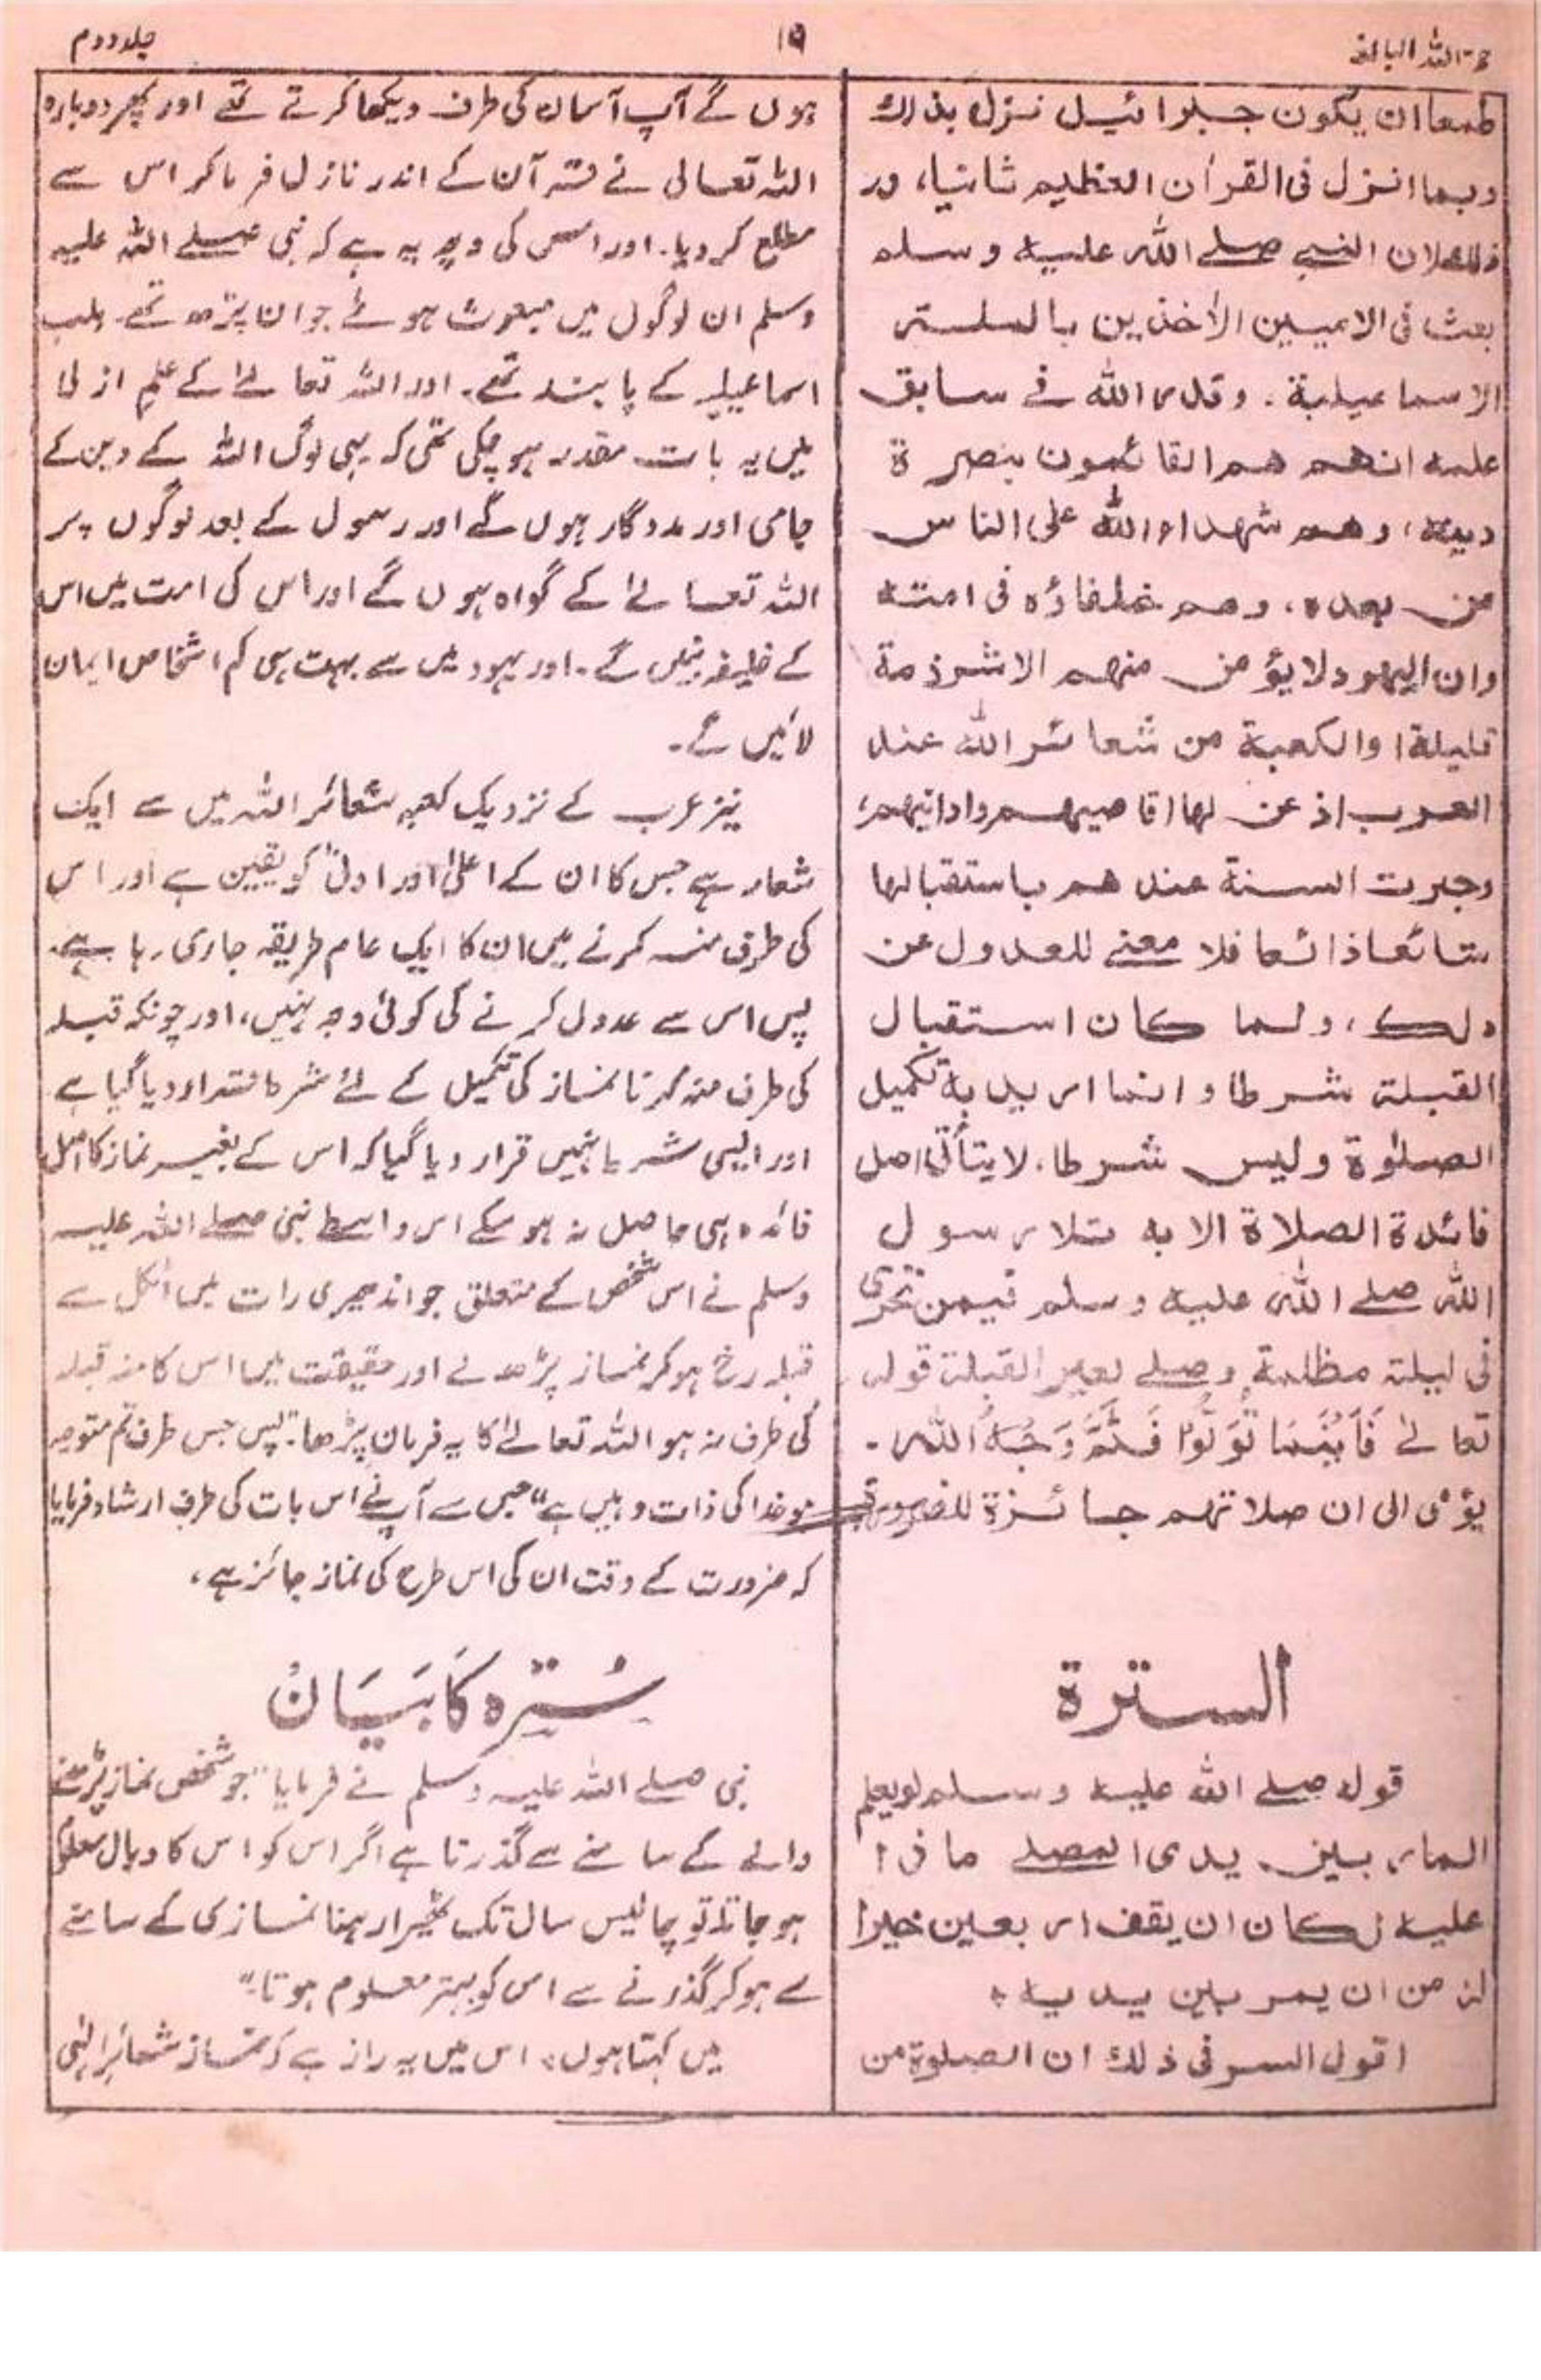 حجۃ اللہ البالغہ
۱۹
جلد دوم
طمعا ان یکون جبرائیل نزل بذلك
وبما انزل فی القراٰن العظیم ثانیا،
النبی صلے اللہ علیہ وسلم
بعث فی الامیین الاٰخذین بالملۃ
الاسماعیلیة. وقدر اللہ فے سابق
علمہ انھم ھم القائمون بنصرة
دینہ، وھم شھداء اللہ علی الناس
من بعدہ، وھم خلفاؤہ فی امتہ
وان الیھود لا یؤمن منھم الا شرذمة
قلیلة، والکعبة من شعائر اللہ عند
العرب اذعن لھا اقاصیھم وادانیھم،
وجرت السنة عندھم باستقبالھا
شائعا ذائعا فلا معنے للعدول عن
ذلک، ولما کان استقبال
القبلة شرطا وانما ارید بہ تکمیل
الصلوٰة ولیس شرطا، لا یتأتی اصل
فائدة الصلاة الا بہ تلا رسول
اللہ صلے اللہ علیہ وسلم فیمن تحرّی
فی لیلة مظلمة وصلے لغیر القبلة قولہ
تعالےٰ فَاَیْنَمَا تُوَلُّوْا فَثَمَّ وَجْہُ اللہِ.
یؤمی الی ان صلاتھم جائزة للضرورة
السترة
قولہ صلے اللہ علیہ وسلم لو یعلم
المار بین یدی المصلے ماذا
علیہ لکان ان یقف اربعین خیرا
لہ من ان یمر بین یدیہ ،
اقول السر فی ذلك ان الصلوٰة من
ہوں گے آپ آسمان کی طرف دیکھا کرتے تھے اور پھر دوبارہ
اللہ تعالیٰ نے قرآن کے اندر نازل فرما کر اس سے
مطلع کر دیا۔ اور اس کی وجہ یہ ہے کہ نبی صلے اللہ علیہ
وسلم ان لوگوں میں مبعوث ہوئے جو ان پڑھ تھے۔ ملت
اسماعیلیہ کے پابند تھے۔ اور اللہ تعالےٰ کے علم ازلی
میں یہ بات مقدر ہو چکی تھی کہ یہی لوگ اللہ کے دین کے
حامی اور مددگار ہوں گے اور رسول کے بعد لوگوں پر
اللہ تعالےٰ کے گواہ ہوں گے اور اس کی امت میں اس
کے خلیفہ بنیں گے۔ اور یہود میں سے بہت ہی کم اشخاص ایمان
لائیں گے۔
نیز عرب کے نزدیک کعبہ شعائر اللہ میں سے ایک
شعار ہے جس کا ان کے اعلیٰ اور ادنیٰ کو یقین ہے اور اس
کی طرف منہ کرنے میں ان کا ایک عام طریقہ جاری رہا ہے۔
پس اس سے عدول کرنے کی کوئی وجہ نہیں، اور چونکہ قبلہ
کی طرف منہ کرنا نماز کی تکمیل کے لئے شرط قرار دیا گیا ہے
اور ایسی شرط نہیں قرار دیا گیا کہ اس کے بغیر نماز کا اصل
فائدہ ہی حاصل نہ ہو سکے اس واسطے نبی صلے اللہ علیہ
وسلم نے اس شخص کے متعلق جو اندھیری رات میں اٹکل سے
قبلہ رخ ہو کر نماز پڑھ لے اور حقیقت میں اس کا منہ قبلہ
کی طرف نہ ہو اللہ تعالےٰ کا یہ فرمان پڑھا۔ "پس جس طرف تم متوجہ
ہو خدا کی ذات وہیں ہے" جس سے آپ نے اس بات کی طرف ارشاد فرمایا
کہ ضرورت کے وقت ان کی اس طرح کی نماز جائز ہے،
سُترہ کا بَیَان
نبی صلے اللہ علیہ وسلم نے فرمایا "جو شخص نماز پڑھنے
والے کے سامنے سے گذرتا ہے اگر اس کو اس کا وبال معلوم
ہو جاتا تو چالیس سال تک ٹھیرا رہنا نمازی کے سامنے
سے ہو کر گذرنے سے اس کو بہتر معلوم ہوتا۔"
میں کہتا ہوں، اس میں یہ راز ہے کہ نماز شعائر الٰہی